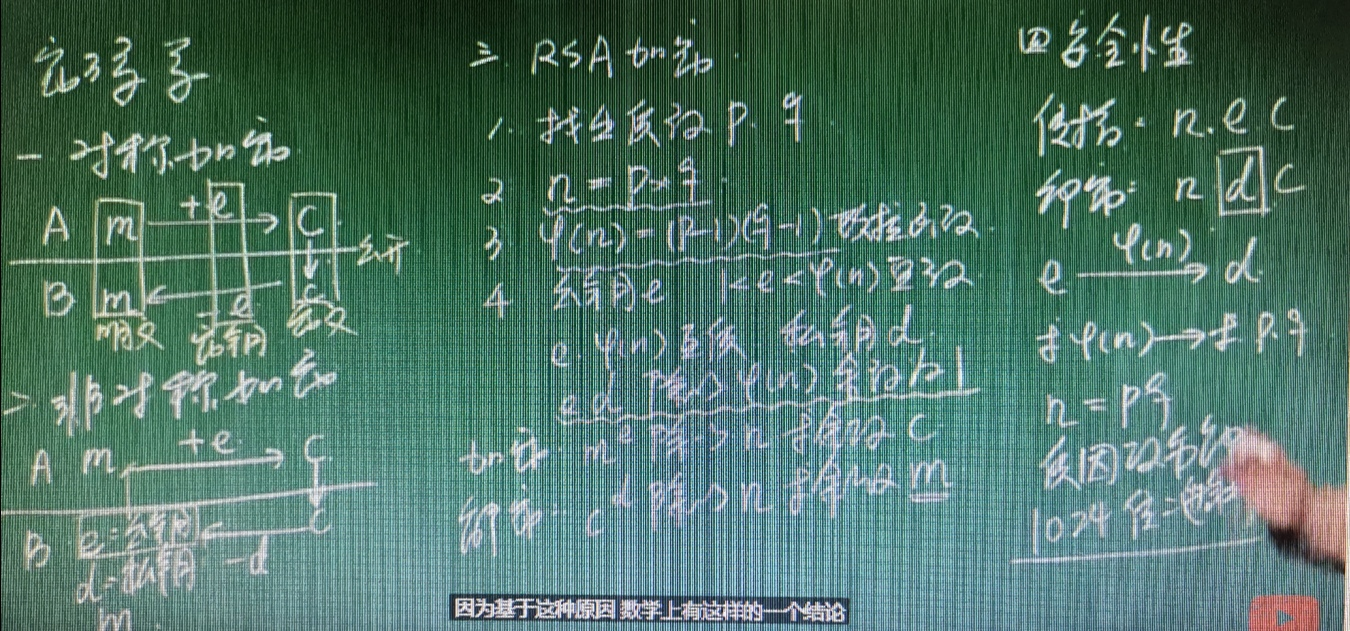 密码学
一 对称加密
A m +e C
公开
B m -e C
明文 密钥 密文
二 非对称加密
A m +e C
B e=公钥 C
d=私钥 -d
m
三. RSA加密.
1. 找出质数 p. q
2 n = p×q
3 φ(n)=(p-1)(q-1) 欧拉函数
4 公钥e 1<e<φ(n) 整数
e. φ(n)互质 私钥d.
ed 除以φ(n)余数为1
加密: m^e 除以n 求余数 C
解密: c^d 除以n 求余数 m
四 安全性
传播: n.e.C
解密: n d C
e φ(n) → d.
求φ(n)→求p.q
n = pq
质因数分解
1024位二进制
因为基于这种原因 数学上有这样的一个结论